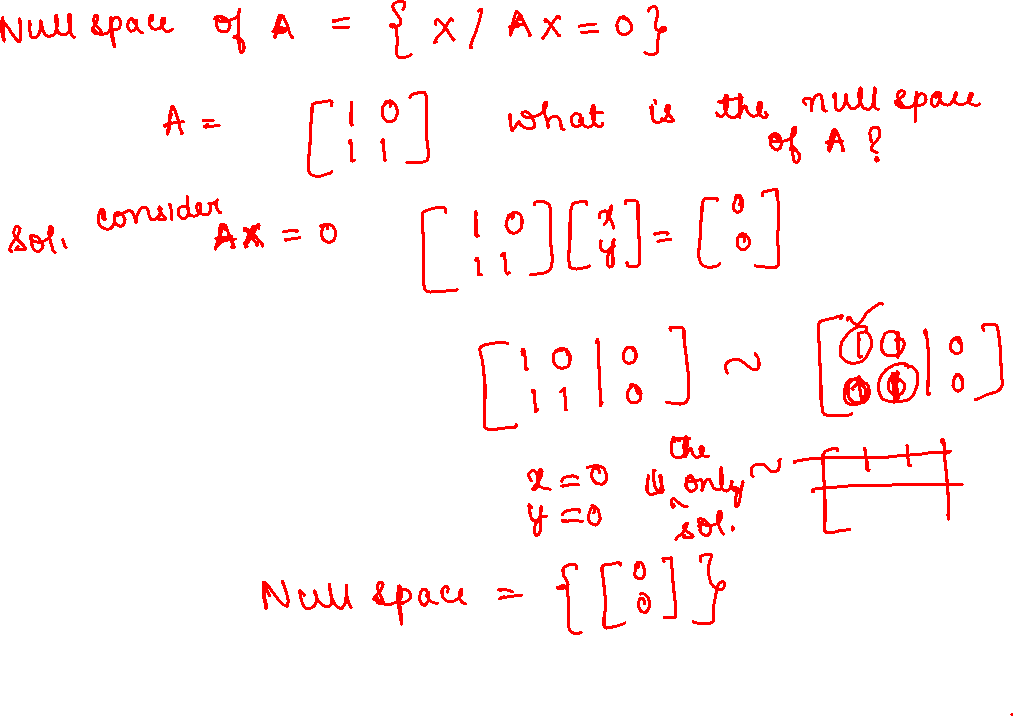 Null space of A = { x / AX = 0 }
A = [ 1 0 1 1 ] what is the null space
of A ?
Sol. consider AX = 0 [ 1 0 1 1 ] [ x y ] = [ 0 0 ]
[ 1 0 | 0 1 1 | 0 ] ~ [ 1 0 | 0 0 1 | 0 ]
x = 0 is the only ~
y = 0 sol.
Null space = { [ 0 0 ] }